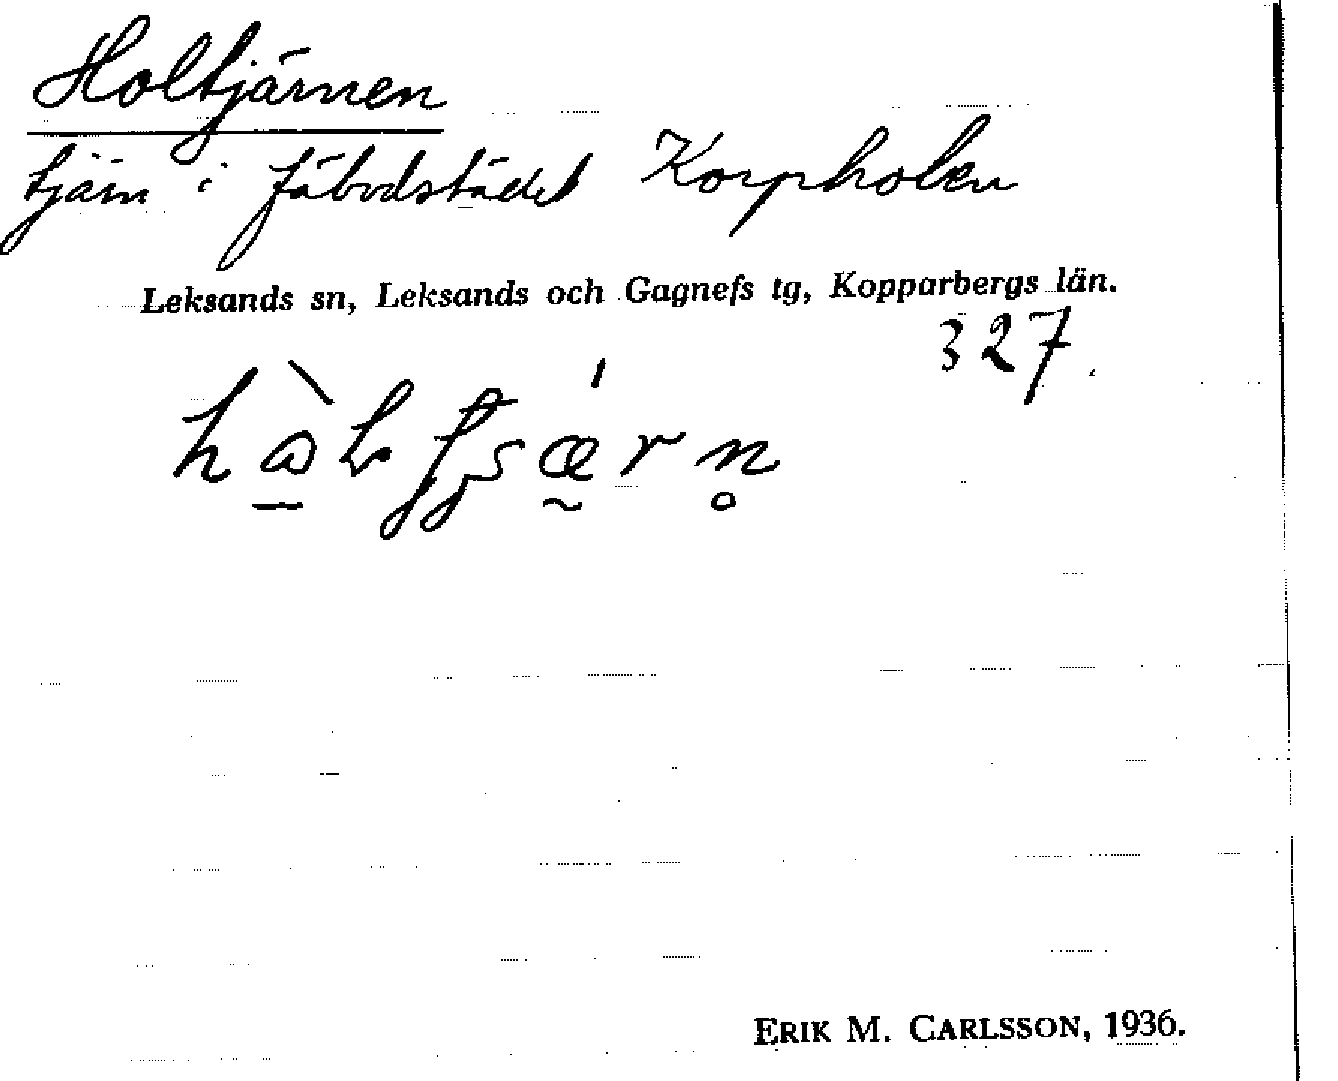 Holtjärnen
tjärn i fäbodstället Korpholen
Leksands sn, Leksands och Gagnefs tg, Kopparbergs län.
327.
ERIK M. CARLSSON, 1936.